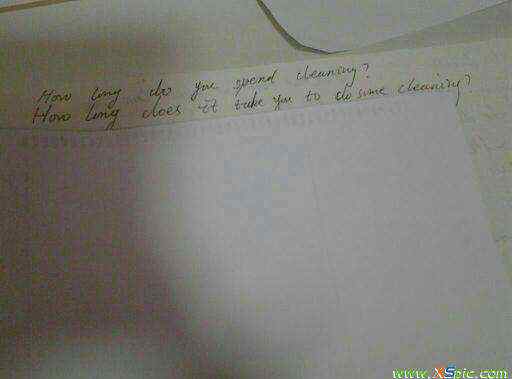 How long do you spend cleaning?
How long does it take you to do some cleaning?
www.XSpic.com